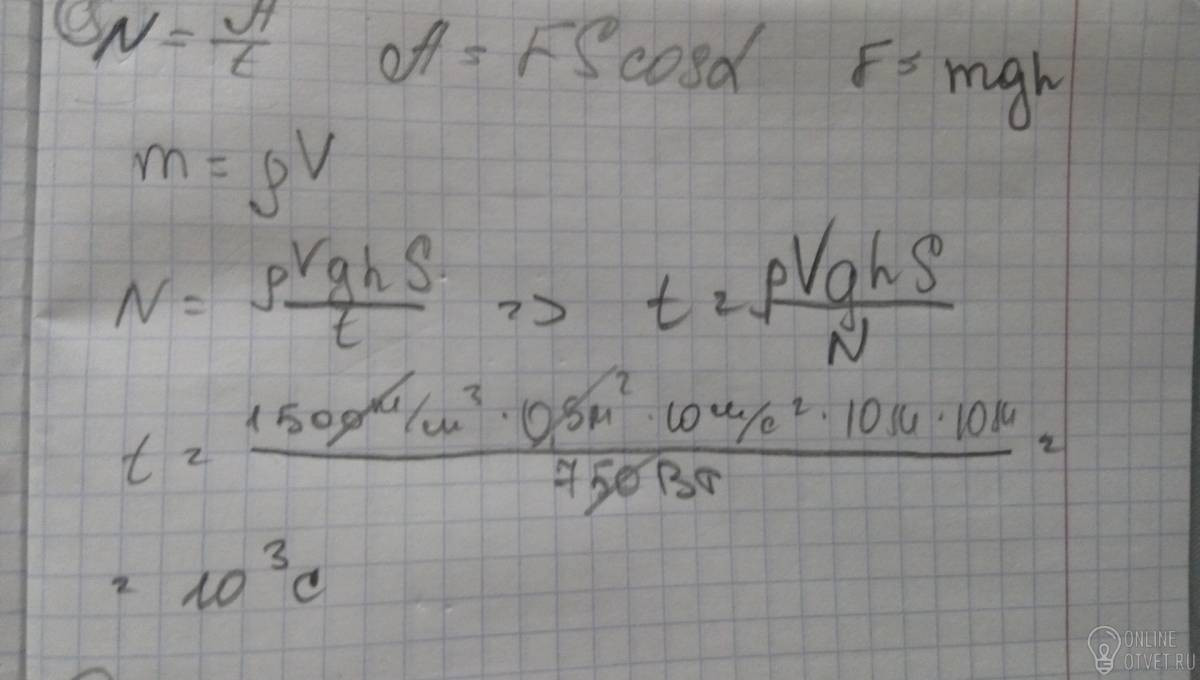 N = A/t A = FS cosα F = mgh
m = ρV
N = ρVghS/t => t = ρVghS/N
t = 1500кг/м³ · 0,5м² · 10м/с² · 10м · 10м / 750Вт =
= 10³ с
ONLINE
OTVET.RU